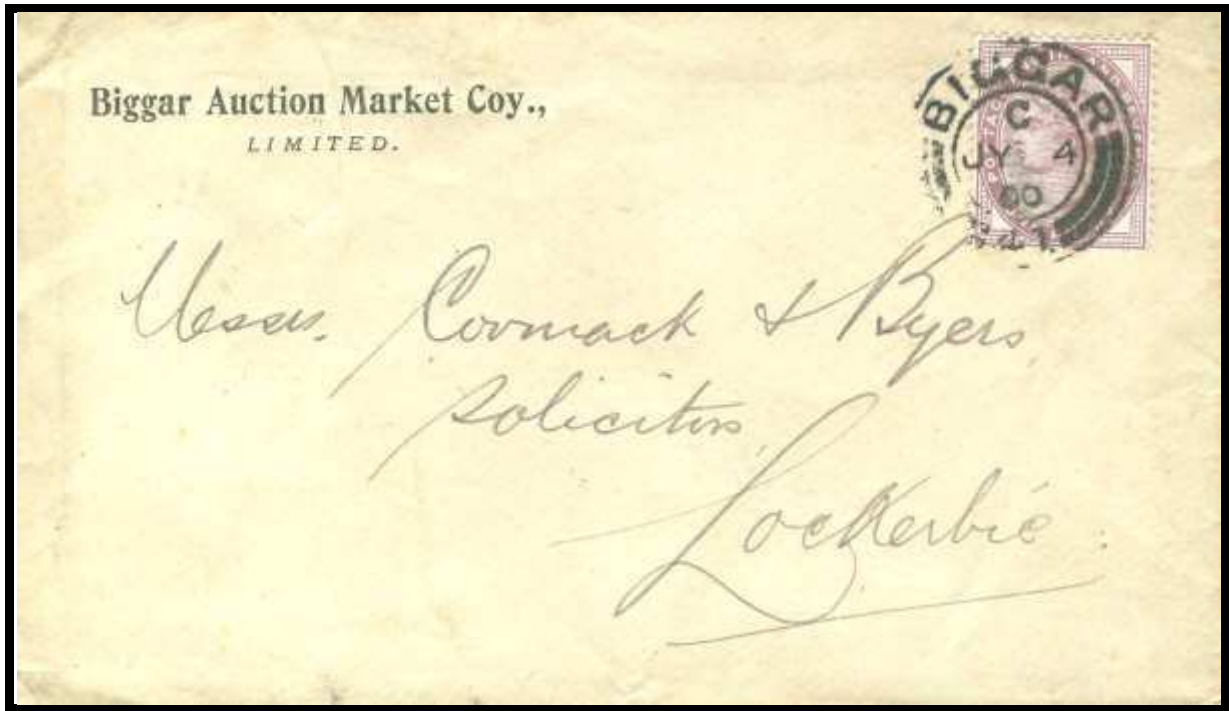 Biggar Auction Market Coy.,
LIMITED.
BIGGAR
C
JY 4
00
Messrs. Cormack & Byers
Solicitors
Lockerbie